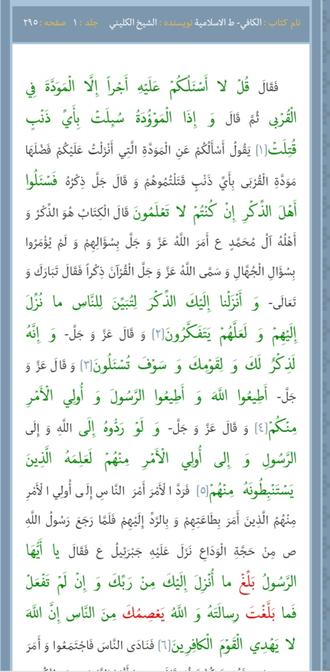 نام کتاب : الكافي- ط الاسلامیة نویسنده : الشيخ الكليني جلد : ۱ صفحه : ۲۹۵
فَقَالَ قُلْ لا أَسْئَلُكُمْ عَلَيْهِ أَجْراً إِلَّا الْمَوَدَّةَ فِي
الْقُرْبى ثُمَّ قَالَ وَ إِذَا الْمَوْؤُدَةُ سُئِلَتْ بِأَيِّ ذَنْبٍ
قُتِلَتْ[۱] يَقُولُ أَسْأَلُكُمْ عَنِ الْمَوَدَّةِ الَّتِي أَنْزَلْتُ عَلَيْكُمْ فَضْلَهَا
مَوَدَّةِ الْقُرْبَى بِأَيِّ ذَنْبٍ قَتَلْتُمُوهُمْ وَ قَالَ جَلَّ ذِكْرُهُ فَسْئَلُوا
أَهْلَ الذِّكْرِ إِنْ كُنْتُمْ لا تَعْلَمُونَ قَالَ الْكِتَابُ هُوَ الذِّكْرُ وَ
أَهْلُهُ آلُ مُحَمَّدٍ ع أَمَرَ اللَّهُ عَزَّ وَ جَلَّ بِسُؤَالِهِمْ وَ لَمْ يُؤْمَرُوا
بِسُؤَالِ الْجُهَّالِ وَ سَمَّى اللَّهُ عَزَّ وَ جَلَّ الْقُرْآنَ ذِكْراً فَقَالَ تَبَارَكَ وَ
تَعَالَى- وَ أَنْزَلْنا إِلَيْكَ الذِّكْرَ لِتُبَيِّنَ لِلنَّاسِ ما نُزِّلَ
إِلَيْهِمْ وَ لَعَلَّهُمْ يَتَفَكَّرُونَ[۲] وَ قَالَ عَزَّ وَ جَلَّ- وَ إِنَّهُ
لَذِكْرٌ لَكَ وَ لِقَوْمِكَ وَ سَوْفَ تُسْئَلُونَ[۳] وَ قَالَ عَزَّ وَ
جَلَّ- أَطِيعُوا اللَّهَ وَ أَطِيعُوا الرَّسُولَ وَ أُولِي الْأَمْرِ
مِنْكُمْ[۴] وَ قَالَ عَزَّ وَ جَلَّ- وَ لَوْ رَدُّوهُ إِلَى اللَّهِ وَ إِلَى
الرَّسُولِ وَ إِلى أُولِي الْأَمْرِ مِنْهُمْ لَعَلِمَهُ الَّذِينَ
يَسْتَنْبِطُونَهُ مِنْهُمْ[۵] فَرَدَّ الْأَمْرَ أَمْرَ النَّاسِ إِلَى أُولِي الْأَمْرِ
مِنْهُمُ الَّذِينَ أَمَرَ بِطَاعَتِهِمْ وَ بِالرَّدِّ إِلَيْهِمْ فَلَمَّا رَجَعَ رَسُولُ اللَّهِ
ص مِنْ حَجَّةِ الْوَدَاعِ نَزَلَ عَلَيْهِ جَبْرَئِيلُ ع فَقَالَ يا أَيُّهَا
الرَّسُولُ بَلِّغْ ما أُنْزِلَ إِلَيْكَ مِنْ رَبِّكَ وَ إِنْ لَمْ تَفْعَلْ
فَما بَلَّغْتَ رِسالَتَهُ وَ اللَّهُ يَعْصِمُكَ مِنَ النَّاسِ إِنَّ اللَّهَ
لا يَهْدِي الْقَوْمَ الْكافِرِينَ[۶] فَنَادَى النَّاسَ فَاجْتَمَعُوا وَ أَمَرَ